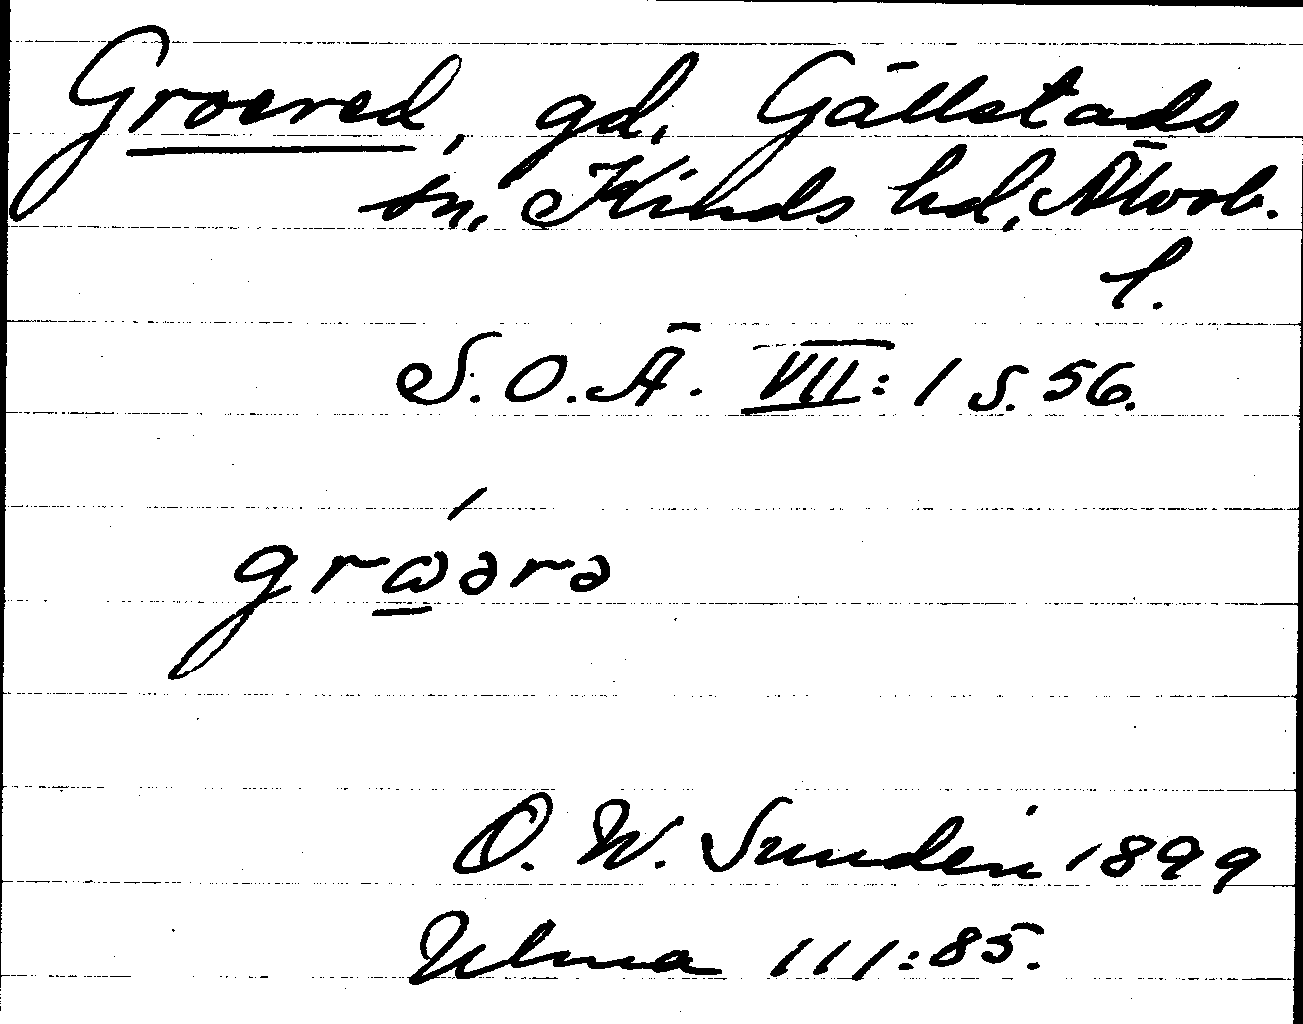 Groered, gd, Gällstads
sn, Kinds hd, Älvsb.
l.
S.O.Ä. VII: 1 s. 56.
grώ̲ərə
O. W. Sundén 1899
Ulma 111:85.